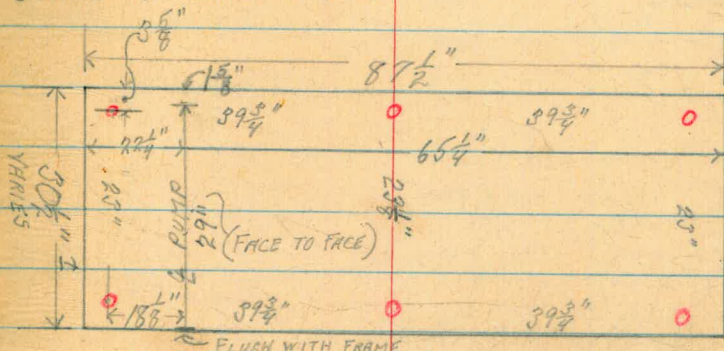 3 5/8"
87 1/2"
1 5/8"
39 3/4" 39 3/4"
22 1/4" 65 1/4"
30 1/2" ±
VARIES
23"
PUMP
29" (FACE TO FACE)
23 1/8"
23"
18 1/8" 39 3/4" 39 3/4"
FLUSH WITH FRAME